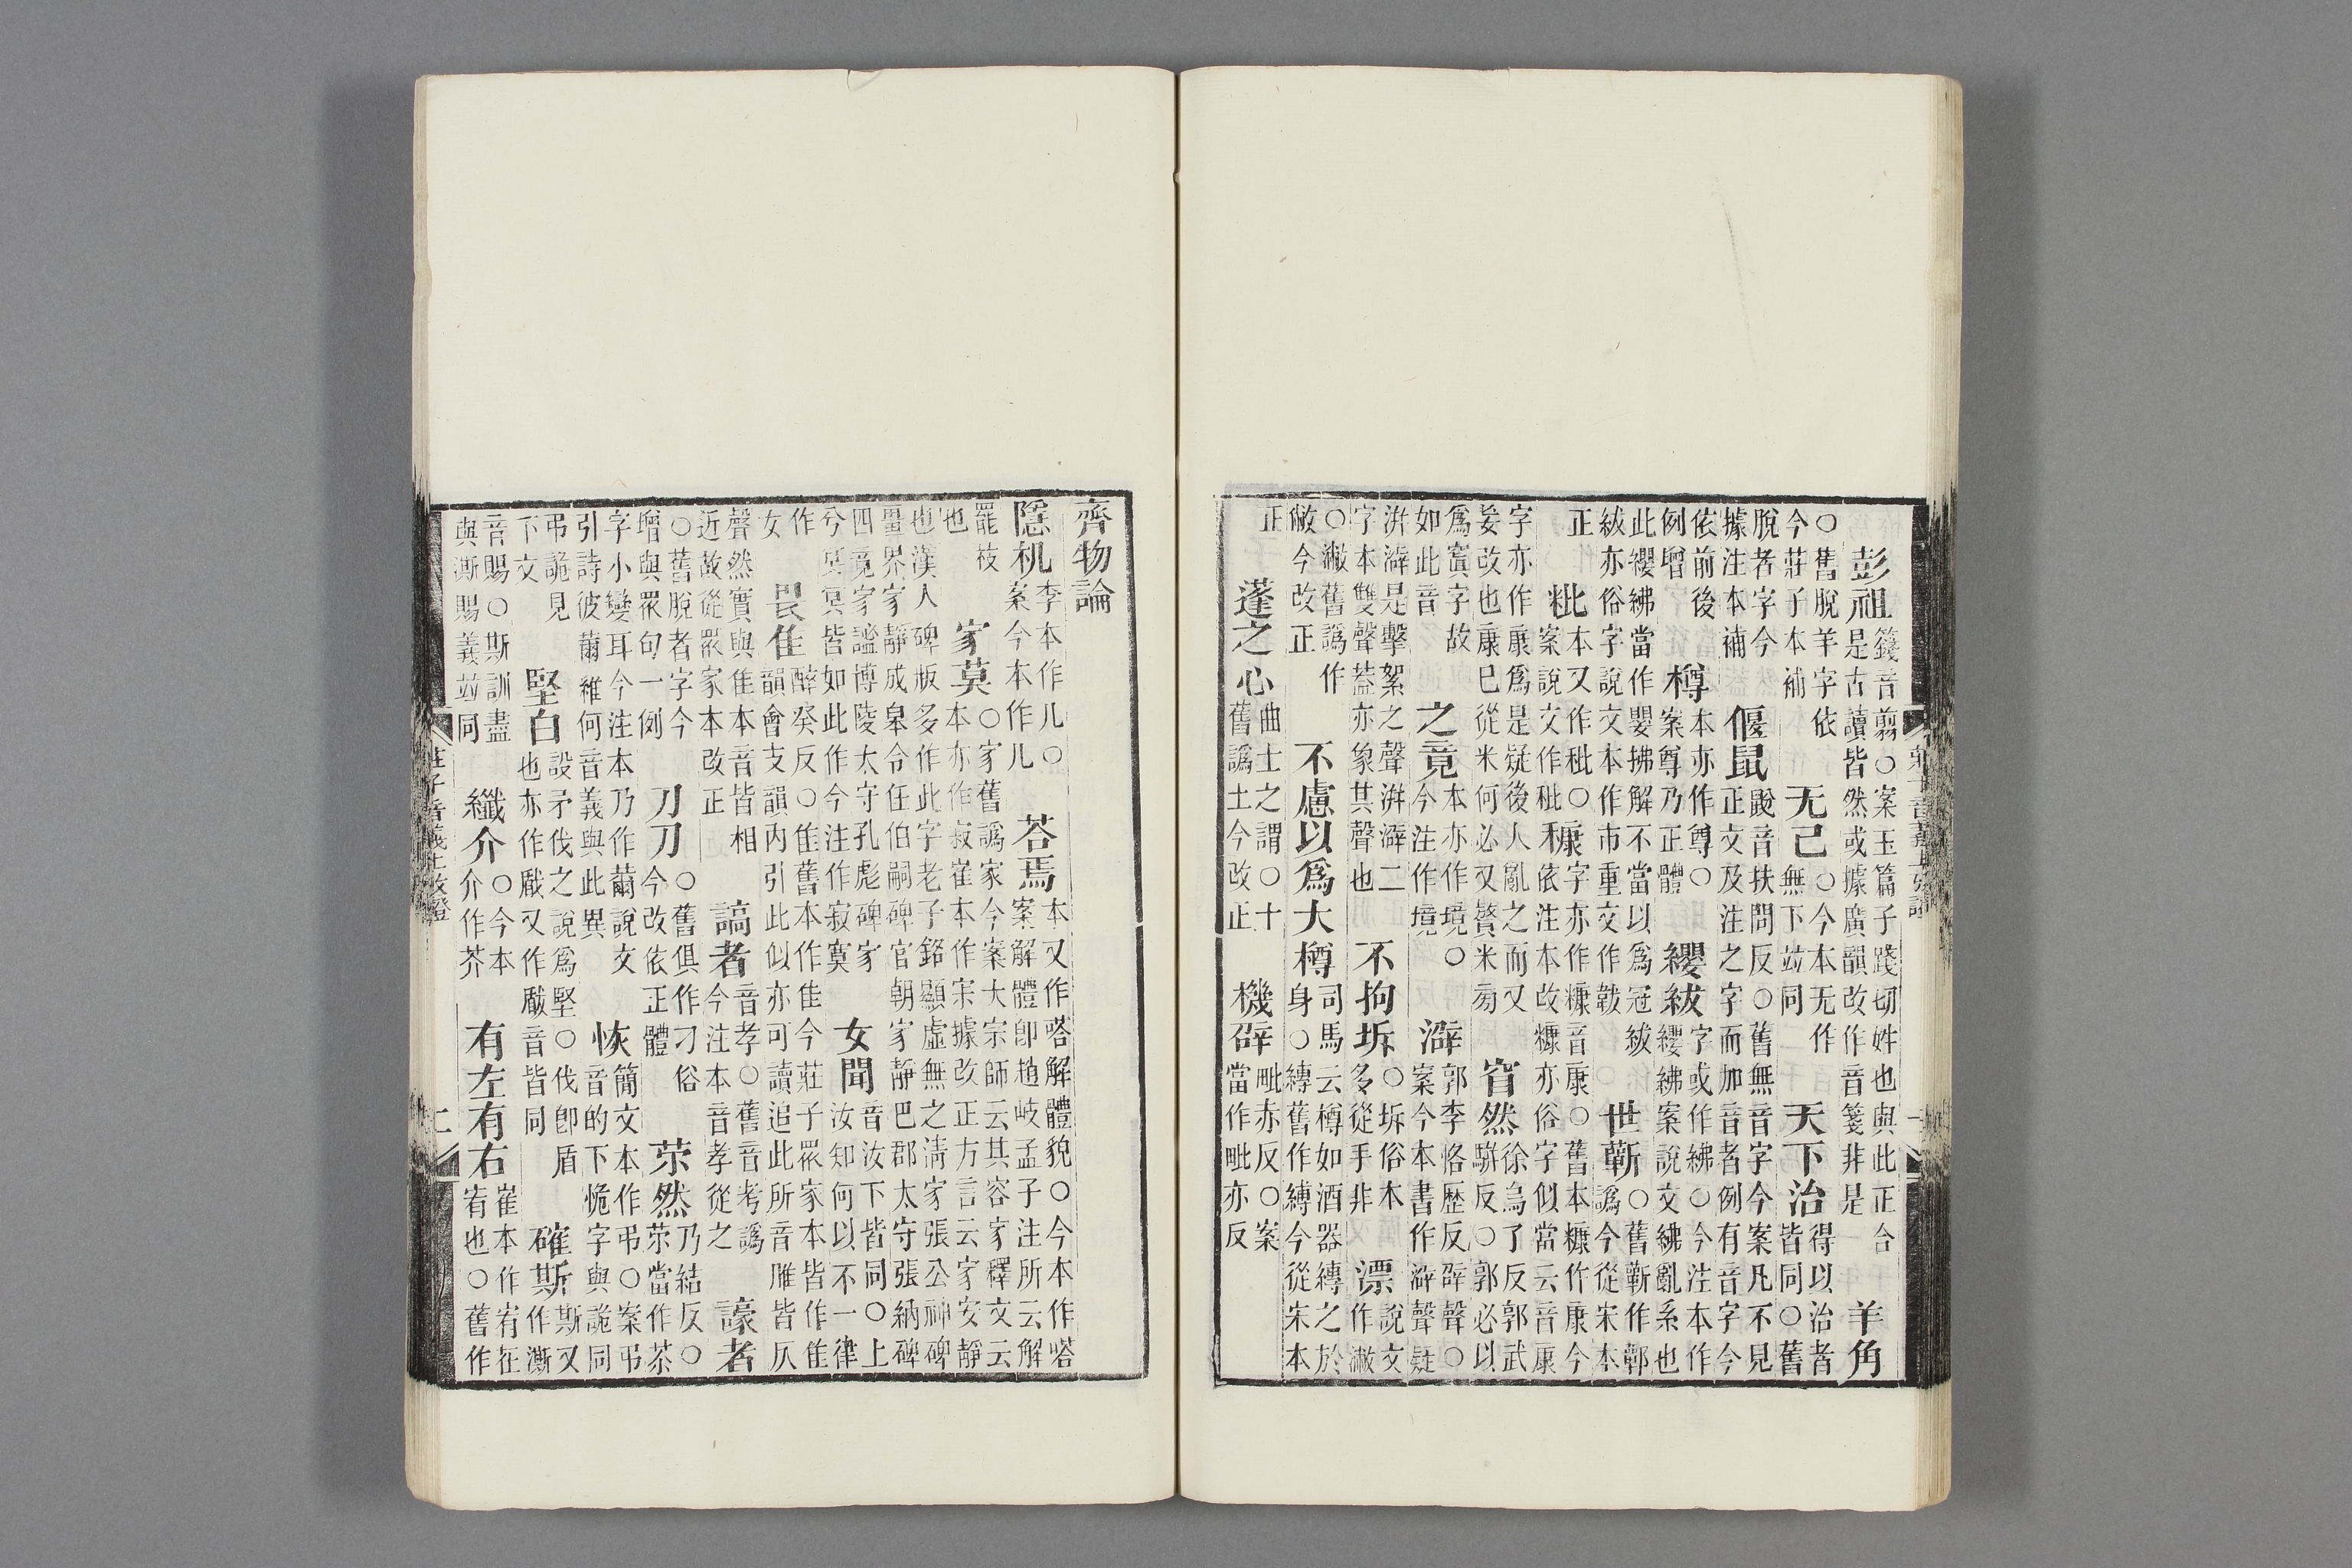 彭祖籛音翦○案玉篇子踐切姓也與此正合是古讀皆然或據廣韻改作音箋非是羊角
○舊脫羊字依今莊子本補无己○今本无作無下竝同天下治得以治者皆同○舊
脫者字今據注本補偃鼠鼥音扶問反○舊無音字今案凡不見正文及注之字而加音者例有音字今
依前後例增樽本亦作尊○案尊乃正體纓紱字或作紼○今注本作纓紼案說文紼亂系也
此纓紼當作嬰拂解不當以爲冠紱紱亦俗字說文本作巿重文作韍世蘄○舊蘄作鄿譌今從宋本
正粃本又作秕○案說文作秕穅字亦作糠音康○舊本糠作康今依注本改糠亦俗字似當云音康
字亦作康爲是疑後人亂之而又妄改也康已從米何必又贅米旁窅然徐烏了反郭武駢反○郭必以
爲窴字故如此音之竟本亦作境○今注作境澼郭李恪歷反澼聲○案今本書作澼聲疑
洴澼是擊絮之聲洴澼二字本雙聲葢亦象其聲也不拘坼○坼俗本多從手非漂說文作潎
○潎舊譌作敝今改正不慮以爲大樽司馬云樽如酒器縳之於身○縳舊作縛今從宋本
正蓬之心曲士之謂○十舊譌土今改正機辟毗赤反○案當作毗亦反
莊子音義上攷證 一
齊物論
隱机李本作几○案今本作几荅焉本又作嗒解體貌○今本作嗒案解體卽趙岐孟子注所云解
罷枝也家莫○家舊譌家今案大宗師云其容家釋文云本亦作寂崔本作宋據改正方言云家安靜
也漢人碑版多作此字老子銘顯虛無之淸家張公神碑畺界家靜成皐令任伯嗣碑官朝家靜巴郡太守張納碑
四竟家謐博陵太守孔彪碑家兮冥冥皆如此作今注作寂寞女聞音汝下皆同○上汝知何以不一律
作女畏隹醉癸反○隹舊本作佳今莊子衆家本皆作隹韻會支韻內引此似亦可讀追此所音雎皆仄
聲然實與隹本音皆相近故從衆家本改正謞者音孝○舊音考譌今注本音孝從之譹者
○舊脫者字今增與衆句一例刀刀○舊俱作刁俗今改依正體苶然乃結反○苶當作荼
字小變耳今注本乃作薾說文引詩彼薾維何音義與此異恢簡文本作弔○案弔音的下恑字與詭同
弔詭見下文堅白設矛伐之說爲堅○伐卽盾也亦作戫又作瞂音皆同確斯斯又作澌
音賜○斯訓盡與澌賜義竝同纖介○今本介作芥有左有右崔本作宥在宥也○舊作
莊子音義上攷證 二